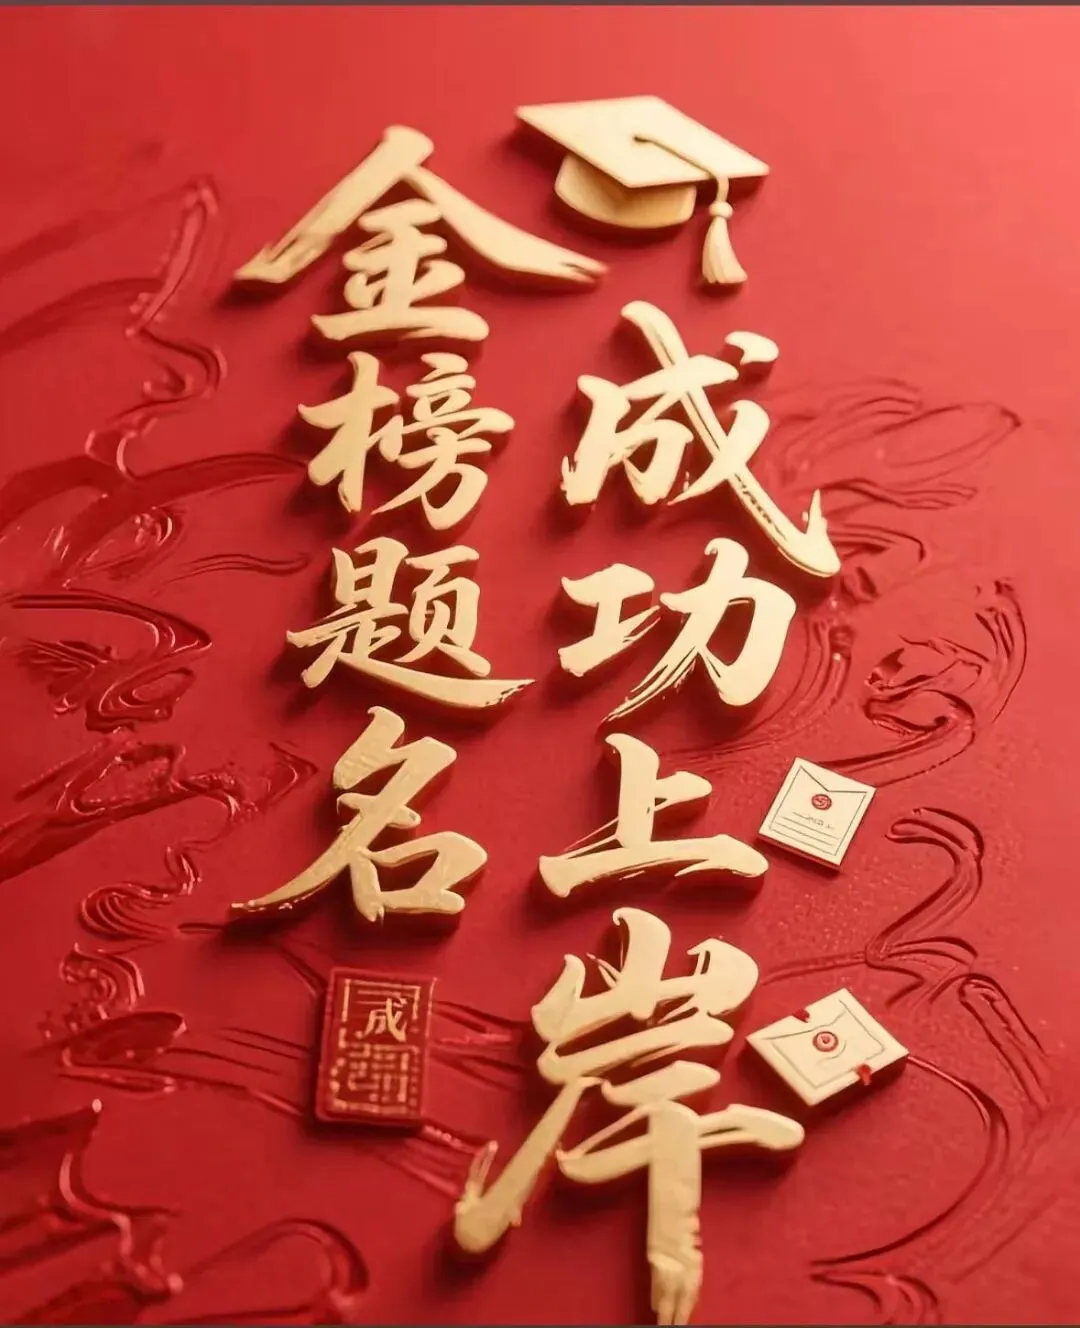 金榜题名
成功上岸
成